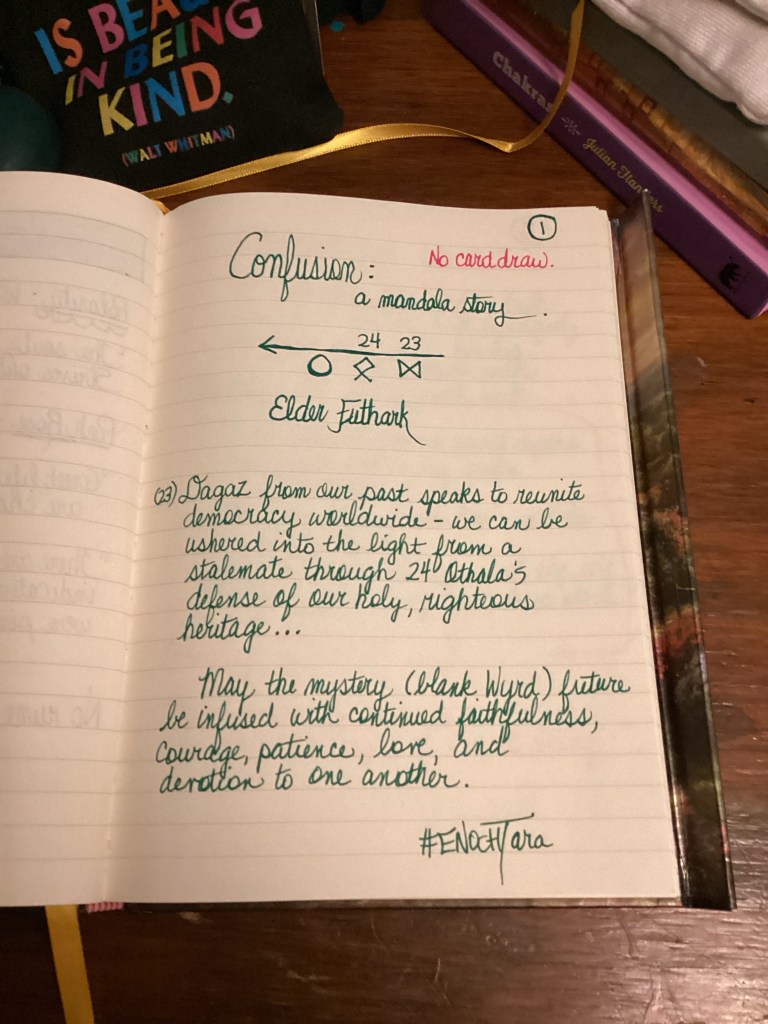 IS BEAU
IN BEING
KIND.
(WALT WHITMAN)
Chakras
Julian Flanders
1
Confusion:
No card draw.
a mandala story.
24 23
Elder Futhark
(23) Dagaz from our past speaks to reunite
democracy worldwide – we can be
ushered into the light from a
stalemate through 24 Othala's
defense of our holy, righteous
heritage...
May the mystery (blank Wyrd) future
be infused with continued faithfulness,
courage, patience, love, and
devotion to one another.
#ENOCHTara